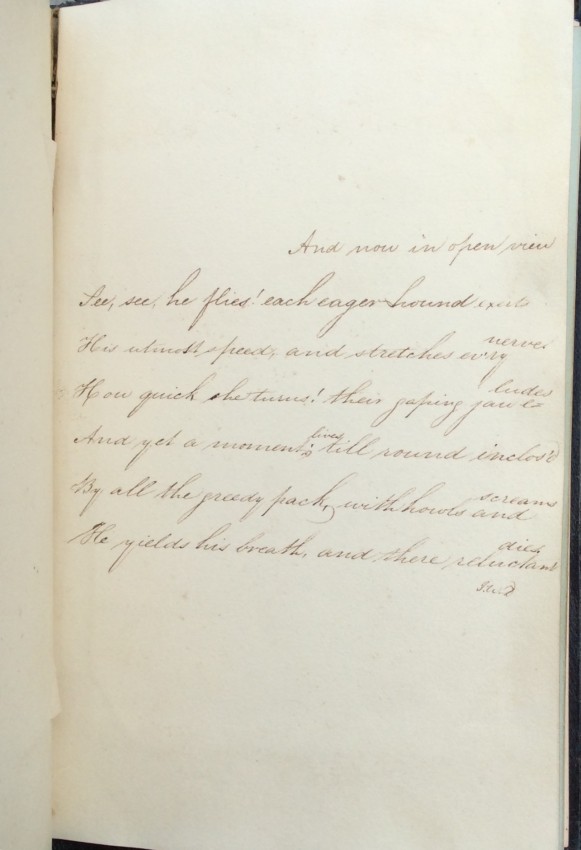 And now in open view
See, see, he flies! each eager hound exerts
His utmost speed, and stretches ev'ry nerve
How quick she turns! their gaping jaws eludes
And yet a moment lives; till round inclos'd
By all the greedy pack, with howls and screams
He yields his breath, and there reluctant dies